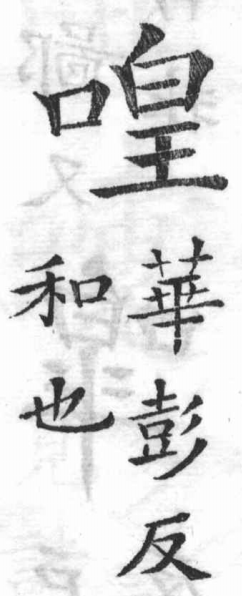 喤
華彭反
和也